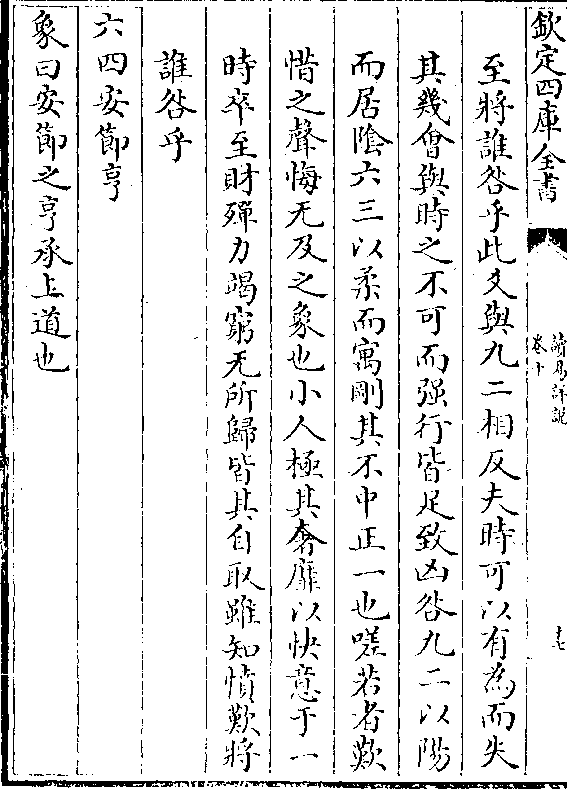 欽定四庫全書
讀易詳說
卷十
十七
至將誰咎乎此爻與九二相反夫時可以有為而失
其幾會與時之不可而强行皆足致凶咎九二以陽
而居陰六三以柔而寓剛其不中正一也嗟若者歎
惜之聲悔无及之象也小人極其奢靡以快意于一
時卒至財殫力竭窮无所歸皆其自取雖知憤歎將
誰咎乎
六四安節亨
象曰安節之亨承上道也